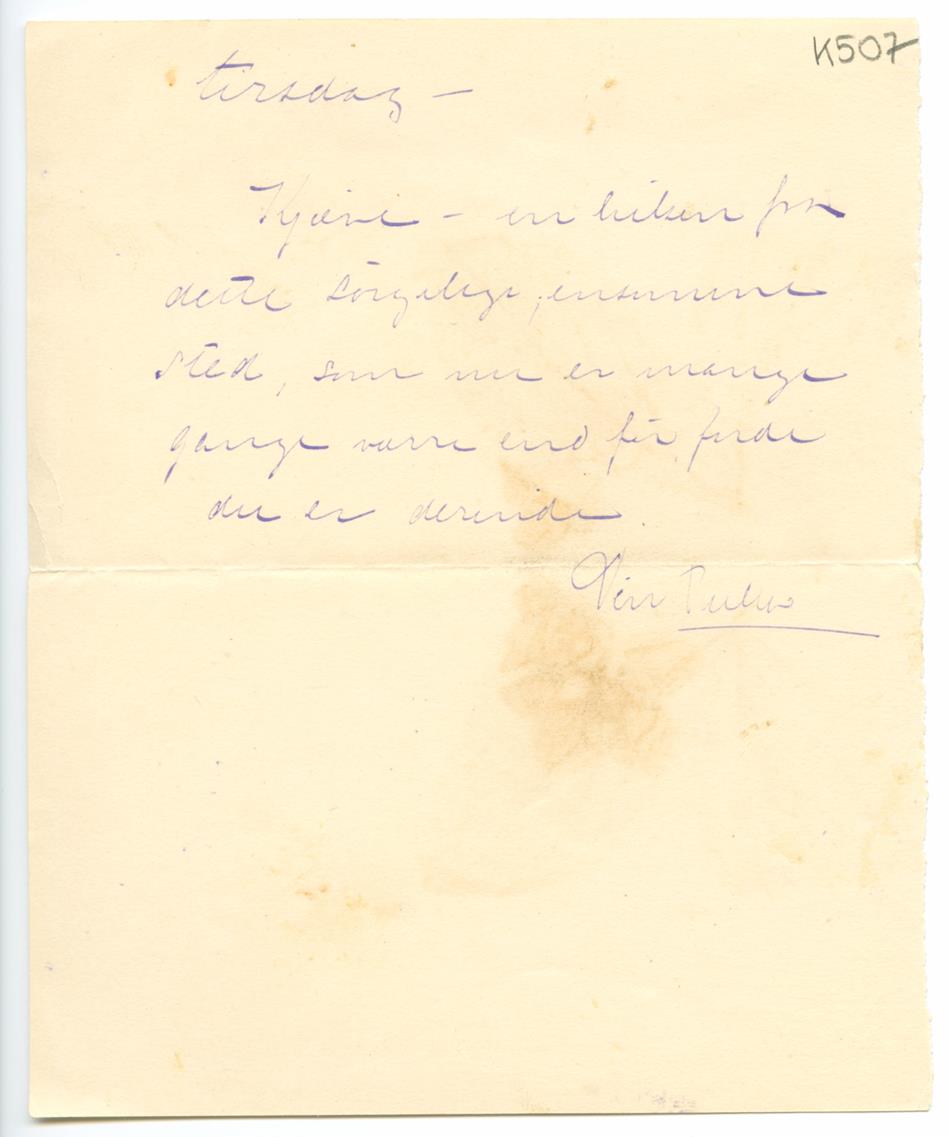 K507
tirsdag –
Kjære – en hilsen fra
dette sørgelige, ensomme
sted, som nu er mange
gange værre end før fordi
du er derinde.
Din Tulla